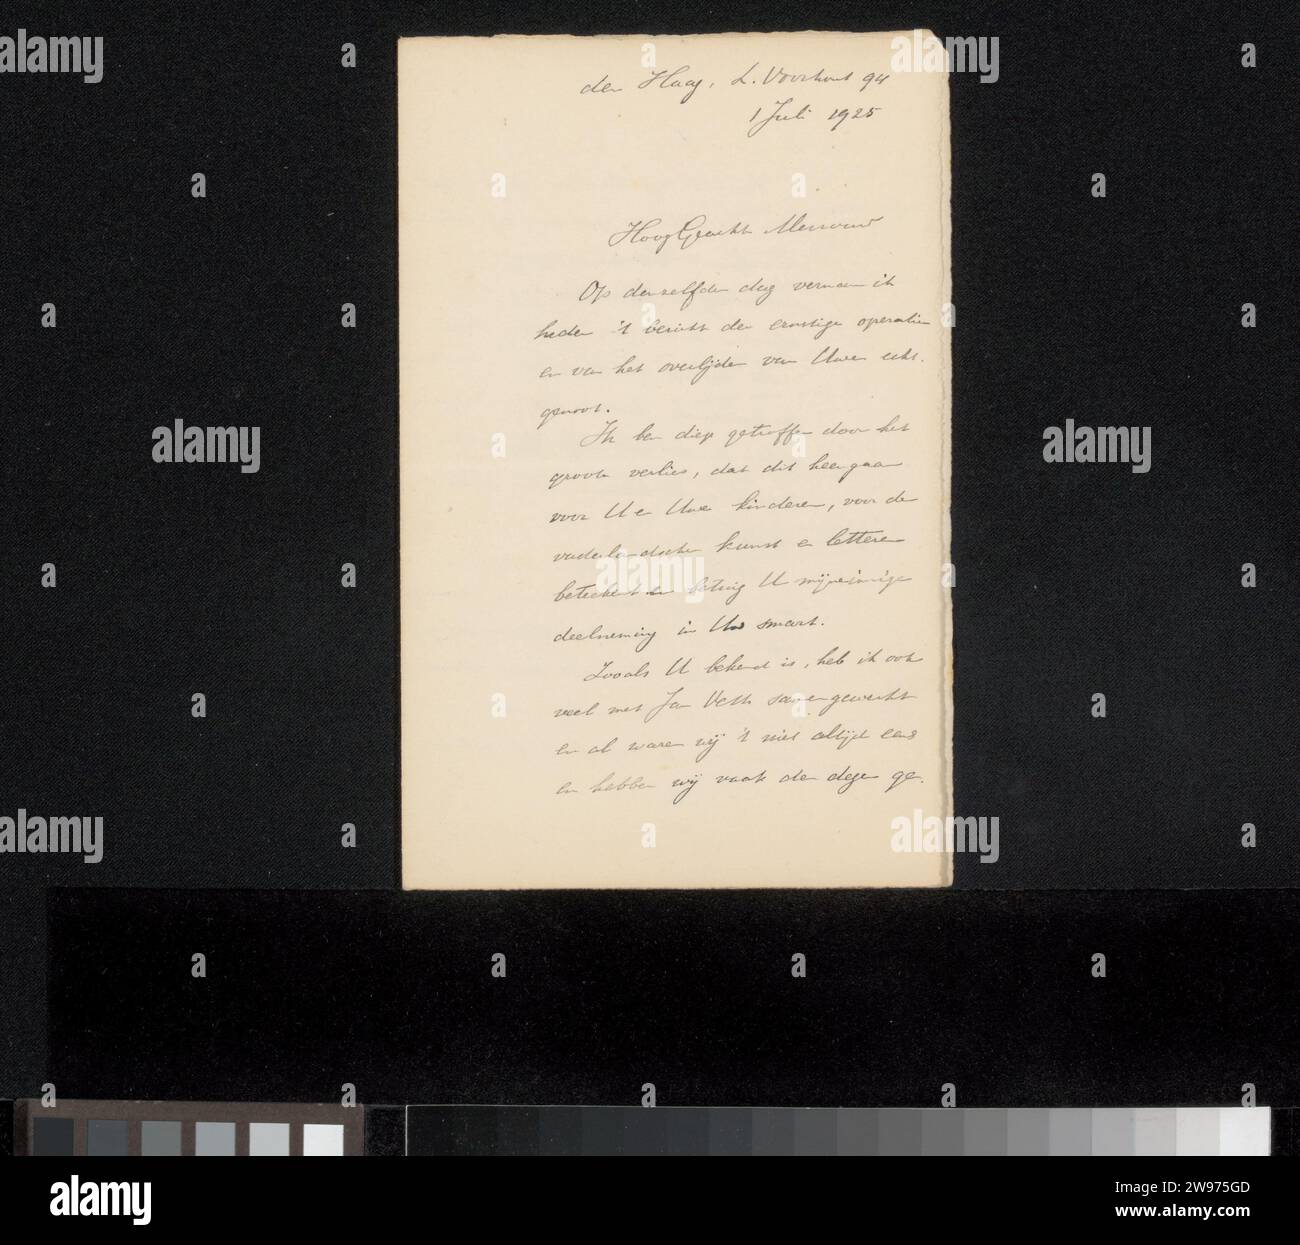 den Haag, L. Voorhout 94
1 Juli 1925
HoogGeachte Mevrouw
Op denzelfden dag vernam ik
heden 't bericht der ernstige operatie
en van het overlijden van Uwen echt-
genoot.
Ik ben diep getroffen door het
groote verlies, dat dit heengaan
voor U en Uwe kinderen, voor de
vaderlandsche kunst en letteren
beteekent en betuig U mijn innige
deelneming in Uw smart.
Zooals U bekend is, heb ik ook
veel met Jan Veth samengewerkt
en al waren wij 't niet altijd eens
en hebben wij vaak den degen ge-
alamy
Image ID: 2W975GD
www.alamy.com